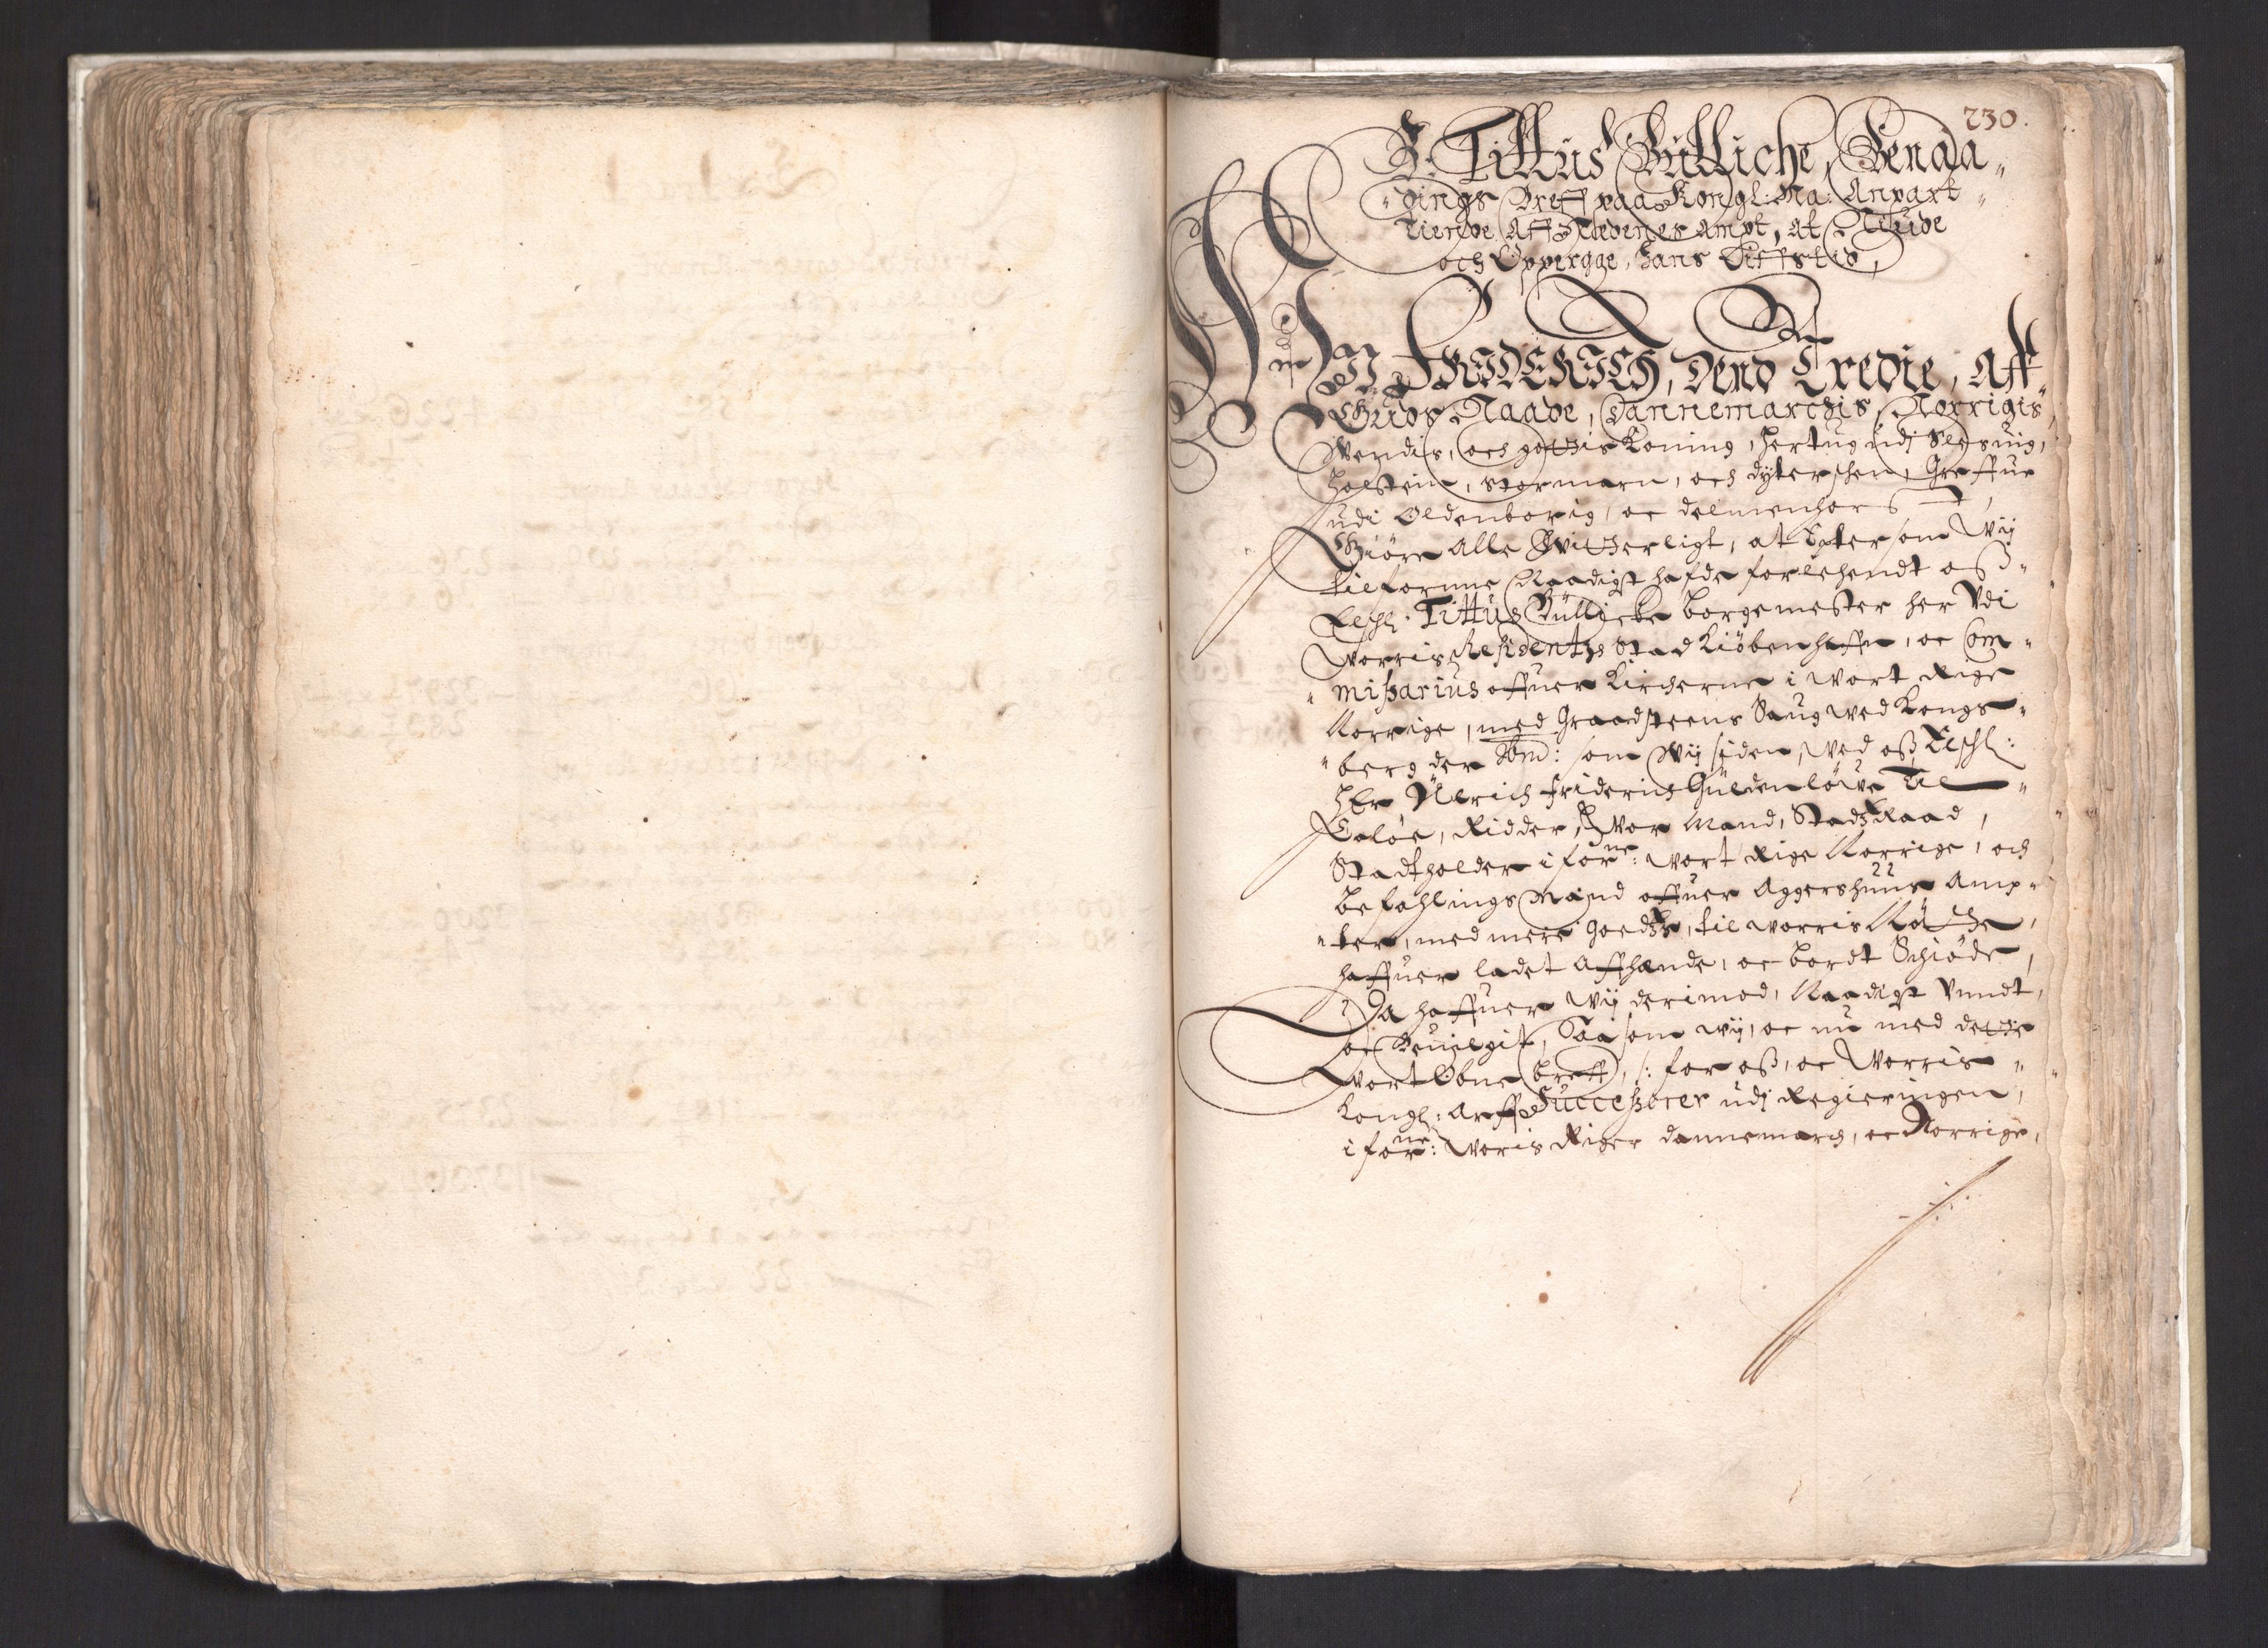 230.
H. Tittus Bülliche, Benaa„
„dings Breff paa Kongl: Ma: Anpart
Tiende Aff Nedenes Ampt, at Niude
och Oppergge, hans Liffstid,
Wii FRIDERICH, Dend Tredie, Aff
Guds Naade, Dannemarchis, Norrigis,
Wendis, och gottis Koning, Hertug udj Slesuig,
Holstein, Stormarn, och dytmerschen, Greffue
udi Oldenborig, oc delmenhorst,
Giöre Alle Witterligt, at Epter som Wij
tilfornne Naadigst hafde forlehendt oß
Elschl. Tittus Büllicke borgemester her Vdi
Worris Residentzs Stad Kiöbenhaffn, oc Com„
„mißarius offuer Kircherne i Wort Rige
Norrige, med Graadsteens Saug wed Kongs„
„berg der : som Wij siden, Wed oß Elschl:
HEr Ulrich friderich Güldenlöwe Til
Ridder, Wor Mand, Stadtz Raad,
Stadtholder i forne: Wort Rige Norrige, och
befahlings Mand offuer Aggershuus Amp„
„ter, med mere goedtz, til worris Nötte,
haffuer ladet Affhænde, oc bordt Schiöde,
Da haffuer Wij derimod, Naadigst Vnndt,
oc Beuilgit, Saa som wij, oc nu med dette
Wort Obne breff, /: for oß, oc Worris
Kongl: Arffve Succeßorer udj Regieringen,
i forne: Woris Riger dannemarch, oc Norrige,